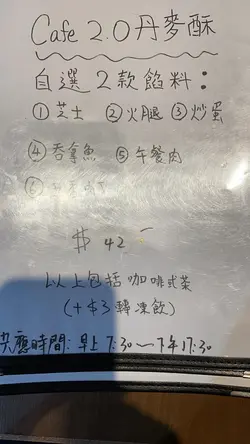 Cafe 2.0丹麥酥
自選2款餡料：
①芝士 ②火腿 ③炒蛋
④吞拿魚 ⑤午餐肉
⑥
$ 42
以上包括咖啡或茶
(+$3轉凍飲)
供應時間：早上7:30～下午17:30